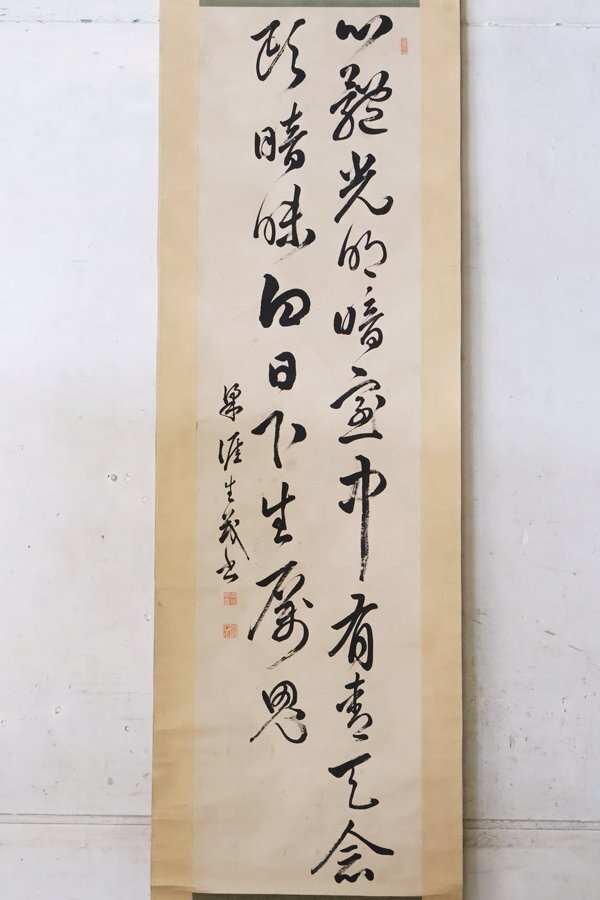 心體光明暗室中有青天念
頭暗昧白日下生厲鬼
生茂書